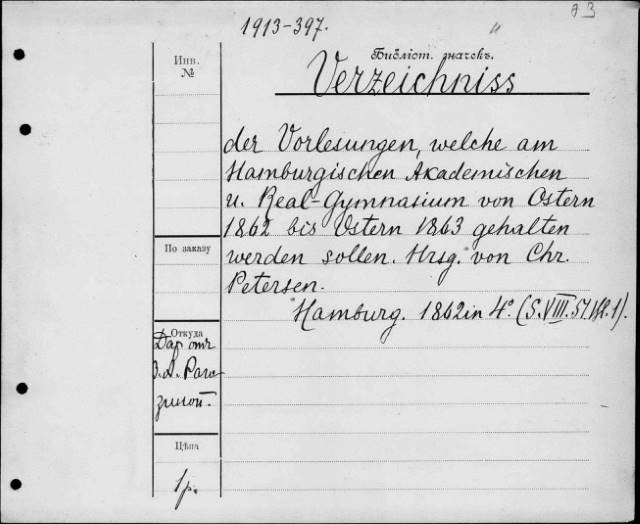 1913-397.
Инв. №
Библіот. значекъ.
Verzeichniss
der Vorlesungen, welche am
Hamburgischen Akademischen
u. Real-Gymnasium von Ostern
1862 bis Ostern 1863 gehalten
werden sollen. Hrsg. von Chr.
Petersen.
Hamburg. 1862 in 4°. (S. VIII. 57. 1 Bl.).
По заказу
Откуда
Даръ отъ
Цѣна
1р.